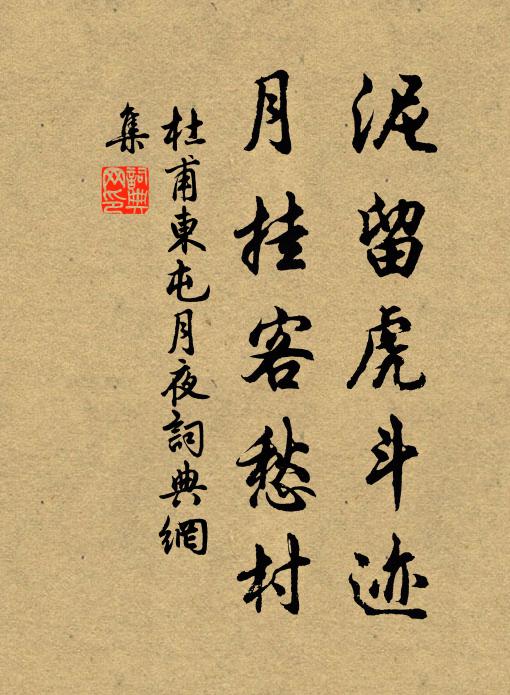 泥留虎斗迹
月挂客愁村
杜甫東屯月夜詞典網
集
詞典
网印